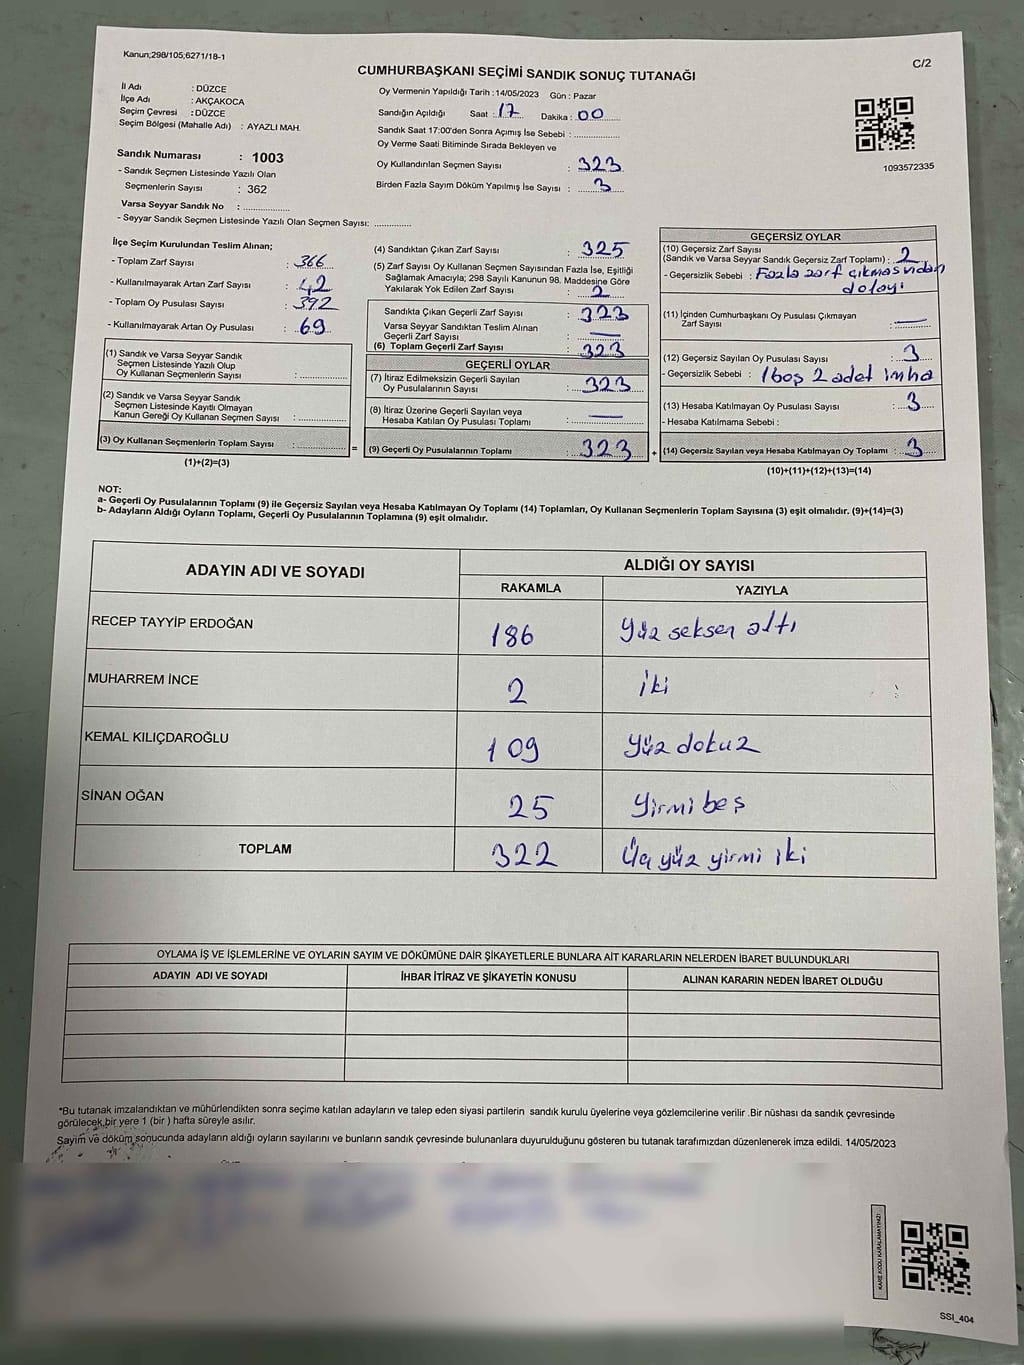 Kanun;298/105;6271/18-1
C/2
CUMHURBAŞKANI SEÇİMİ SANDIK SONUÇ TUTANAĞI
İl Adı : DÜZCE
İlçe Adı : AKÇAKOCA
Seçim Çevresi : DÜZCE
Seçim Bölgesi (Mahalle Adı) : AYAZLI MAH.
Sandık Numarası : 1003
- Sandık Seçmen Listesinde Yazılı Olan
Seçmenlerin Sayısı : 362
Varsa Seyyar Sandık No : ................
- Seyyar Sandık Seçmen Listesinde Yazılı Olan Seçmen Sayısı: ..............
Oy Vermenin Yapıldığı Tarih : 14/05/2023 Gün : Pazar
Sandığın Açıldığı Saat : 17 Dakika : 00
Sandık Saat 17:00'den Sonra Açımış İse Sebebi : ................
Oy Verme Saati Bitiminde Sırada Bekleyen ve
Oy Kullandırılan Seçmen Sayısı : 323
Birden Fazla Sayım Döküm Yapılmış İse Sayısı : 3
1093572335
İlçe Seçim Kurulundan Teslim Alınan;
- Toplam Zarf Sayısı : 366
- Kullanılmayarak Artan Zarf Sayısı : 42
- Toplam Oy Pusulası Sayısı : 392
- Kullanılmayarak Artan Oy Pusulası : 69
(1) Sandık ve Varsa Seyyar Sandık
Seçmen Listesinde Yazılı Olup
Oy Kullanan Seçmenlerin Sayısı : ................
(2) Sandık ve Varsa Seyyar Sandık
Seçmen Listesinde Kayıtlı Olmayan
Kanun Gereği Oy Kullanan Seçmen Sayısı : ................
(3) Oy Kullanan Seçmenlerin Toplam Sayısı : ................ =
(1)+(2)=(3)
(4) Sandıktan Çıkan Zarf Sayısı : 325
(5) Zarf Sayısı Oy Kullanan Seçmen Sayısından Fazla İse, Eşitliği
Sağlamak Amacıyla; 298 Sayılı Kanunun 98. Maddesine Göre
Yakılarak Yok Edilen Zarf Sayısı : 2
Sandıkta Çıkan Geçerli Zarf Sayısı : 323
Varsa Seyyar Sandıktan Teslim Alınan
Geçerli Zarf Sayısı : —
(6) Toplam Geçerli Zarf Sayısı : 323
GEÇERLİ OYLAR
(7) İtiraz Edilmeksizin Geçerli Sayılan
Oy Pusulalarının Sayısı : 323
(8) İtiraz Üzerine Geçerli Sayılan veya
Hesaba Katılan Oy Pusulası Toplamı : —
(9) Geçerli Oy Pusulalarının Toplamı : 323 +
GEÇERSİZ OYLAR
(10) Geçersiz Zarf Sayısı
(Sandık ve Varsa Seyyar Sandık Geçersiz Zarf Toplamı) : 2
- Geçersizlik Sebebi : Fazla zarf çıkmasından
dolayı
(11) İçinden Cumhurbaşkanı Oy Pusulası Çıkmayan
Zarf Sayısı : —
(12) Geçersiz Sayılan Oy Pusulası Sayısı : 3
- Geçersizlik Sebebi : 1 boş 2 adet imha
(13) Hesaba Katılmayan Oy Pusulası Sayısı : 3
- Hesaba Katılmama Sebebi :
(14) Geçersiz Sayılan veya Hesaba Katılmayan Oy Toplamı : 3
(10)+(11)+(12)+(13)=(14)
NOT:
a- Geçerli Oy Pusulalarının Toplamı (9) ile Geçersiz Sayılan veya Hesaba Katılmayan Oy Toplamı (14) Toplamları, Oy Kullanan Seçmenlerin Toplam Sayısına (3) eşit olmalıdır. (9)+(14)=(3)
b- Adayların Aldığı Oyların Toplamı, Geçerli Oy Pusulalarının Toplamına (9) eşit olmalıdır.
ADAYIN ADI VE SOYADI ALDIĞI OY SAYISI
RAKAMLA YAZIYLA
RECEP TAYYİP ERDOĞAN 186 Yüz seksen altı
MUHARREM İNCE 2 iki
KEMAL KILIÇDAROĞLU 109 Yüz dokuz
SİNAN OĞAN 25 Yirmi beş
TOPLAM 322 Üç yüz yirmi iki
OYLAMA İŞ VE İŞLEMLERİNE VE OYLARIN SAYIM VE DÖKÜMÜNE DAİR ŞİKAYETLERLE BUNLARA AİT KARARLARIN NELERDEN İBARET BULUNDUKLARI
ADAYIN ADI VE SOYADI İHBAR İTİRAZ VE ŞİKAYETİN KONUSU ALINAN KARARIN NEDEN İBARET OLDUĞU
*Bu tutanak imzalandıktan ve mühürlendikten sonra seçime katılan adayların ve talep eden siyasi partilerin sandık kurulu üyelerine veya gözlemcilerine verilir .Bir nüshası da sandık çevresinde
görülecek bir yere 1 (bir ) hafta süreyle asılır.
Sayım ve döküm sonucunda adayların aldığı oyların sayılarını ve bunların sandık çevresinde bulunanlara duyurulduğunu gösteren bu tutanak tarafımızdan düzenlenerek imza edildi. 14/05/2023
KARE KODU KARALAMAYINIZ!
SSI_404